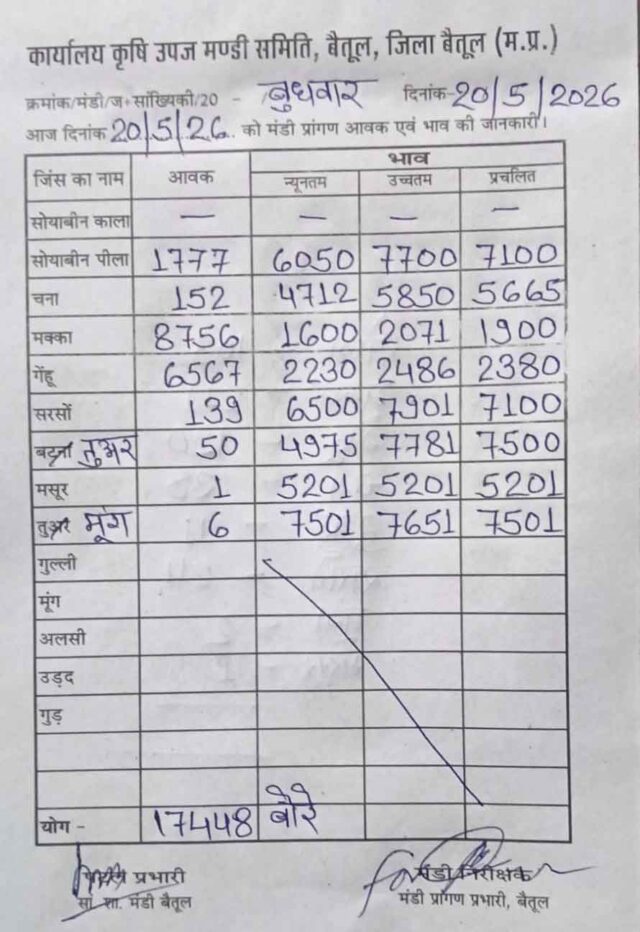 कार्यालय कृषि उपज मण्डी समिति, बैतूल, जिला बैतूल (म.प्र.)
क्रमांक/मंडी/ज+सांख्यिकी/20 - बुधवार दिनांक-20/5/2026
आज दिनांक 20/5/26 को मंडी प्रांगण आवक एवं भाव की जानकारी।
जिंस का नाम आवक भाव
न्यूनतम उच्चतम प्रचलित
सोयाबीन काला — — — —
सोयाबीन पीला 1777 6050 7700 7100
चना 152 4712 5850 5665
मक्का 8756 1600 2071 1900
गेंहू 6567 2230 2486 2380
सरसों 139 6500 7901 7100
तुअर 50 4975 7781 7500
मसूर 1 5201 5201 5201
तुअर मूंग 6 7501 7651 7501
गुल्ली
मूंग
अलसी
उड़द
गुड़
योग - 17448 बोरे
प्रभारी मंडी निरीक्षक
सां. शा. मंडी बैतूल मंडी प्रांगण प्रभारी, बैतूल